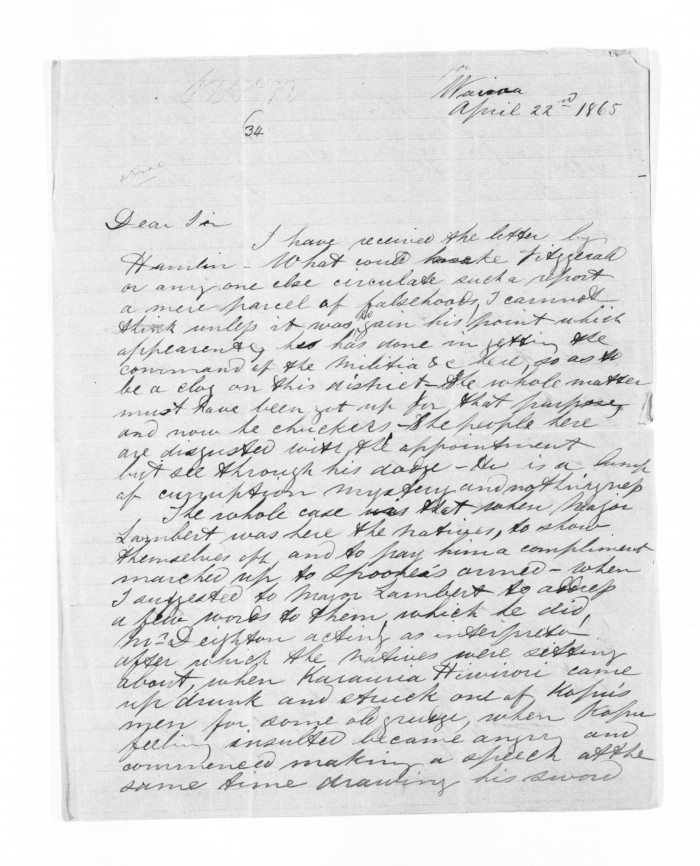 Wairoa
April 22nd 1865
34
Dear Sir
I have received the letter by
Hamlin - What could make Fitzgerald
or any one else circulate such a report
a mere parcel of falsehoods, I cannot
think unless it was, gain his point which
appearently he has done in getting the
command of the Militia &c here, so as to
be a clog on this district - The whole matter
must have been got up for that purpose,
and now he chuckers - The people here
are disgusted with the appointment
but see through his dodge - He is a lump
of curruption mystery and nothingness
The whole case was that when Major
Lambert was here the natives, to show
themselves off and to pay him a compliment
marched up to Spooner's armed - when
I suggested to Major Lambert to address
a few words to them, which he did,
Mr Deighton acting as interpreter,
after which the natives were sitting
about, when Karauria Hiwirori came
up drunk and struck one of Kopus
men for some old grudge, when Kopu
feeling insulted became angry and
commenced making a speech at the
same time drawing his sword